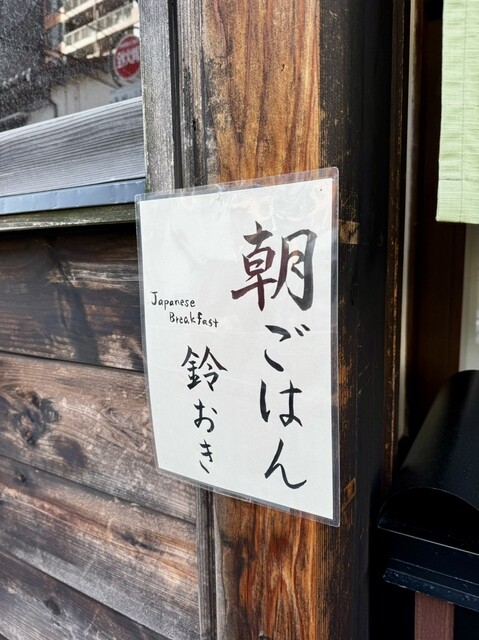 朝ごはん
Japanese
Breakfast
鈴おき